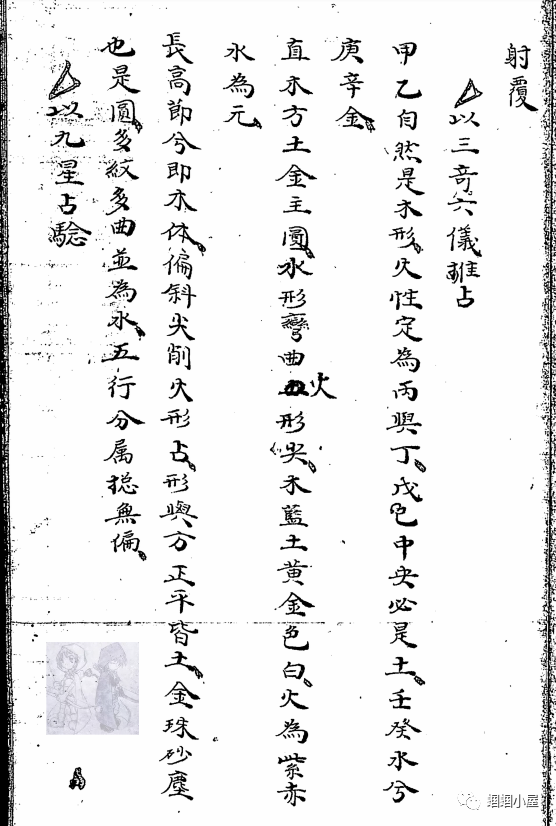 射覆
△以三竒六儀雜占
甲乙自然是木形、火性定為丙與丁、戊色中央必是土、壬癸水兮
庚辛金、
直木方土金主圓、水形彎曲火形尖、木藍土黄金色白、火為紫赤
水為元、
長高節兮即木体、偏斜尖削火形占、形與方正平皆土、金珠砂塵
也是圓、多紋多曲並為水、五行分属捴無偏、
△以九星占騐
蝈蝈小屋